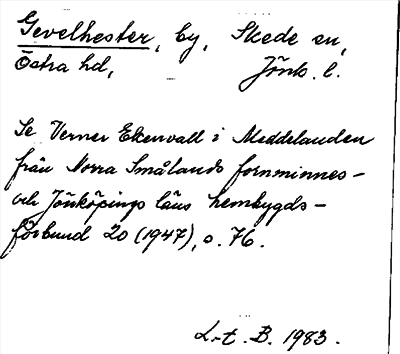 Gevelhester, by, Skede sn,
Östra hd, Jönk. l.
Se Verner Ekenvall i Meddelanden
från Norra Smålands fornminnes-
och Jönköpings läns hembygds-
förbund 20 (1947), s. 76.
L-t. B. 1983.